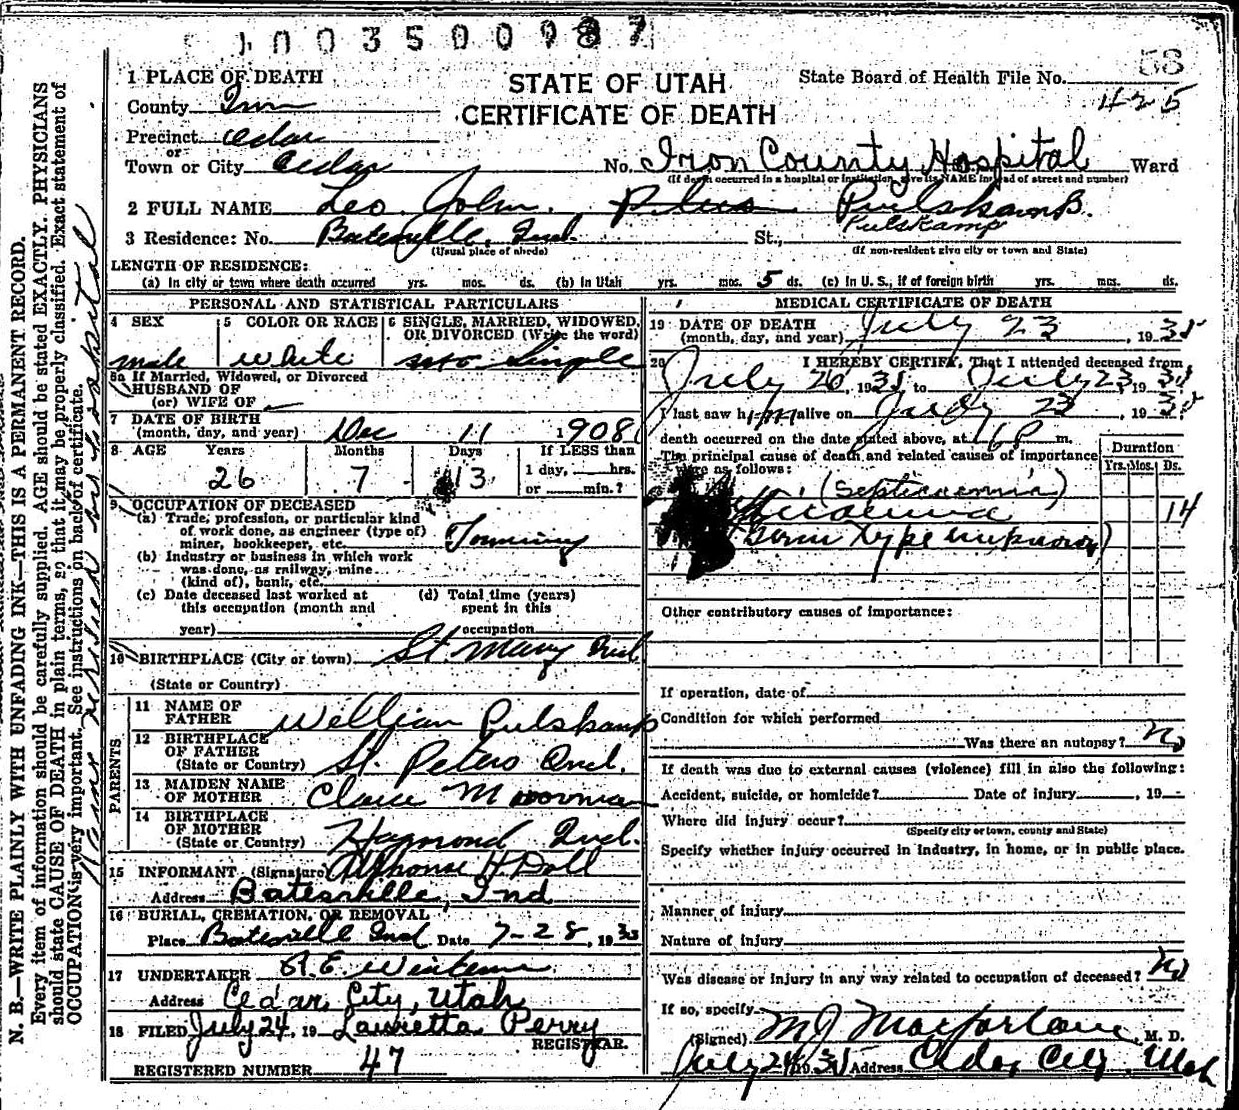 1003500987
58
1 PLACE OF DEATH
STATE OF UTAH
State Board of Health File No.
425
County Iron
CERTIFICATE OF DEATH
Precinct Cedar
or
Town or City Cedar No. Iron County Hospital Ward
(If death occurred in a hospital or institution, give its NAME instead of street and number)
2 FULL NAME Leo John Pulskamp.
Pulskamp
3 Residence: No. Batesville, Ind. St.,
(Usual place of abode) (If non-resident give city or town and State)
LENGTH OF RESIDENCE:
(a) In city or town where death occurred yrs. mos. ds. (b) In Utah yrs. mos. 5 ds. (c) In U. S., if of foreign birth yrs. mos. ds.
PERSONAL AND STATISTICAL PARTICULARS
4 SEX 5 COLOR OR RACE 6 SINGLE, MARRIED, WIDOWED, OR DIVORCED (Write the word)
male white Single
6a If Married, Widowed, or Divorced
HUSBAND OF
(or) WIFE OF
7 DATE OF BIRTH
(month, day, and year) Dec 11 1908
8 AGE Years Months Days If LESS than
26 7 13 1 day, hrs.
or min.?
9 OCCUPATION OF DECEASED
(a) Trade, profession, or particular kind
of work done, as engineer (type of)
miner, bookkeeper, etc.
(b) Industry or business in which work
was done, as railway, mine
(kind of), bank, etc.
(c) Date deceased last worked at
this occupation (month and
year)
(d) Total time (years)
spent in this
occupation
10 BIRTHPLACE (City or town) St. Mary Ind
(State or Country)
PARENTS
11 NAME OF
FATHER William Pulskamp
12 BIRTHPLACE
OF FATHER
(State or Country) St. Peters Ind.
13 MAIDEN NAME
OF MOTHER Clara Moorman
14 BIRTHPLACE
OF MOTHER
(State or Country) Haymond Ind.
15 INFORMANT (Signature) Alphonse H Doll
Address Batesville, Ind
16 BURIAL, CREMATION, OR REMOVAL
Place Batesville Ind Date 7-28, 1935
17 UNDERTAKER
Address Cedar City, Utah
18 FILED July 24, 19 Lauretta Perry
REGISTRAR.
REGISTERED NUMBER 47
MEDICAL CERTIFICATE OF DEATH
19 DATE OF DEATH
(month, day, and year) July 23, 1935
20 I HEREBY CERTIFY, That I attended deceased from
July 20, 1935 to July 23 1935
I last saw him alive on July 23, 1935
death occurred on the date stated above, at 6 P m.
The principal cause of death and related causes of importance
were as follows:
Duration
Yrs. Mos. Ds.
(Septicaemia)
14
Other contributory causes of importance:
If operation, date of
Condition for which performed
Was there an autopsy? No
If death was due to external causes (violence) fill in also the following:
Accident, suicide, or homicide? Date of injury , 19
Where did injury occur?
(Specify city or town, county and State)
Specify whether injury occurred in industry, in home, or in public place.
Manner of injury
Nature of injury
Was disease or injury in any way related to occupation of deceased? No
If so, specify
(Signed) M J Macfarlane, M. D.
July 24 1935 Address Cedar City Utah
N. B.—WRITE PLAINLY WITH UNFADING INK—THIS IS A PERMANENT RECORD.
Every item of information should be carefully supplied. AGE should be stated EXACTLY. PHYSICIANS
should state CAUSE OF DEATH in plain terms, so that it may be properly classified. Exact statement of
OCCUPATION is very important. See instructions on back of certificate.